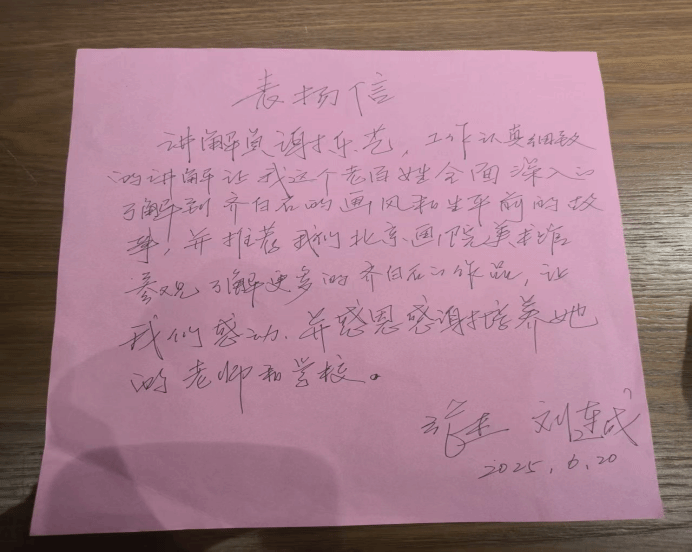 表扬信
讲解员谢乐艺，工作认真细致
的讲解让我这个老百姓全面深入的
了解到齐白石的画风和生平前的故
事，并推荐我们北京画院美术馆
参观了解更多的齐白石的作品，让
我们感动．并感恩感谢培养她
的老师和学校。
刘连成
2025.6.20